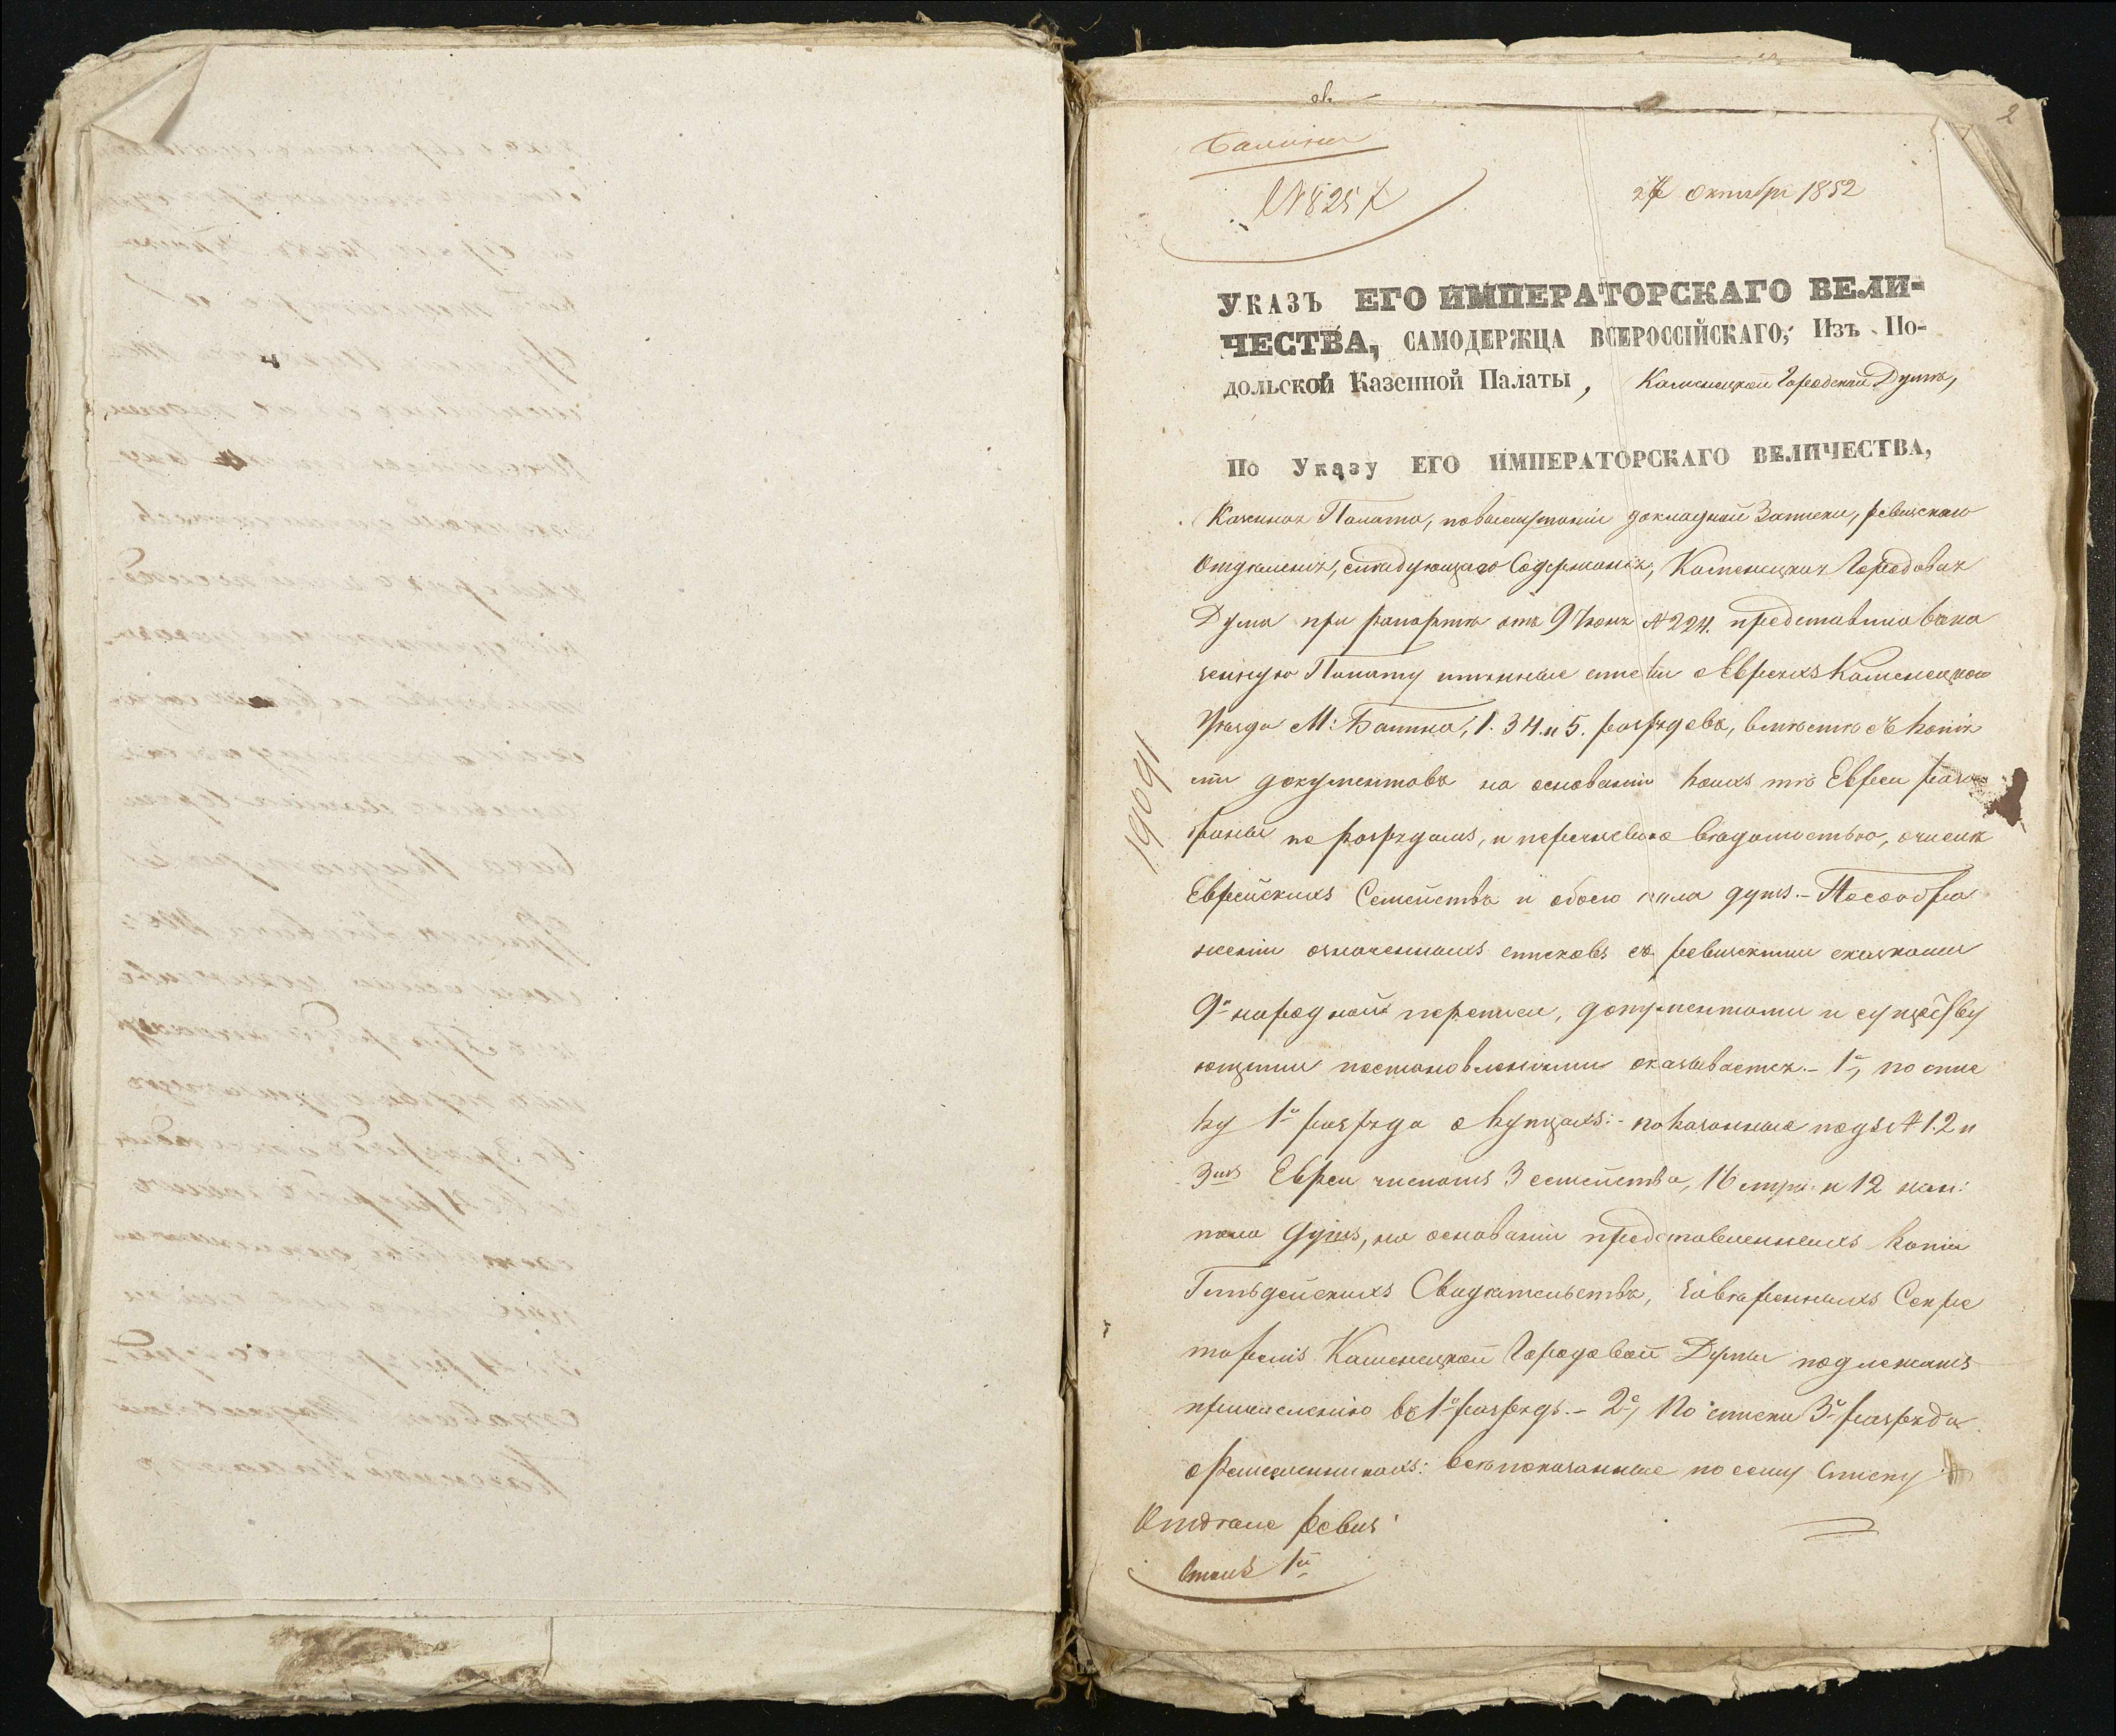 2
Балина
№ 8257
27 Октября 1852
Указъ ЕГО ИМПЕРАТОРСКАГО ВЕЛИ-
ЧЕСТВА, САМОДЕРЖЦА ВСЕРОССІЙСКАГО, Изъ По-
дольской Казенной Палаты, Каменецкой Городской Думѣ,
По Указу ЕГО ИМПЕРАТОРСКАГО ВЕЛИЧЕСТВА,
Казенная Палата, докладной Записки, ревизскаго
Отдѣленія, слѣдующаго Содержанія, Каменецкая Городовая
Дума при рапортѣ отъ 9 Іюня № 224. представила въ ка
зенную Палату имянные списки о Евреяхъ Каменецкаго
Уѣзда М: Балина, 1. 3 4. и 5. разрядовъ, вмѣстѣ съ копія
ми документовъ на основаніи коихъ тѣ Евреи разо
браны по разрядамъ, и перечневою вѣдомостью, о числѣ
Еврейскихъ Семействъ и обоего пола душъ. - По сообра
женіи означенныхъ списковъ съ ревизскими сказками
9й народной переписи, документами и существу
ющими постановленіями оказывается. - 1е, по спис
ку 1го разряда о купцахъ: - показанные подъ № 1. 2 и
3мъ Евреи числомъ 3 семейства, 16 муж: и 12 жен:
пола душъ, на основаніи представленныхъ копій
Гильдейскихъ Свидѣтельствъ, завѣренныхъ Секре
таремъ Каменецкой Городовой Думы подлежатъ
причисленію въ 1й разрядъ. - 2е, По списку 3го разряда
о ремесленникахъ: всѣ показанные по сему Списку
Отдѣленіе Ревиз:
Столъ 1й
19091